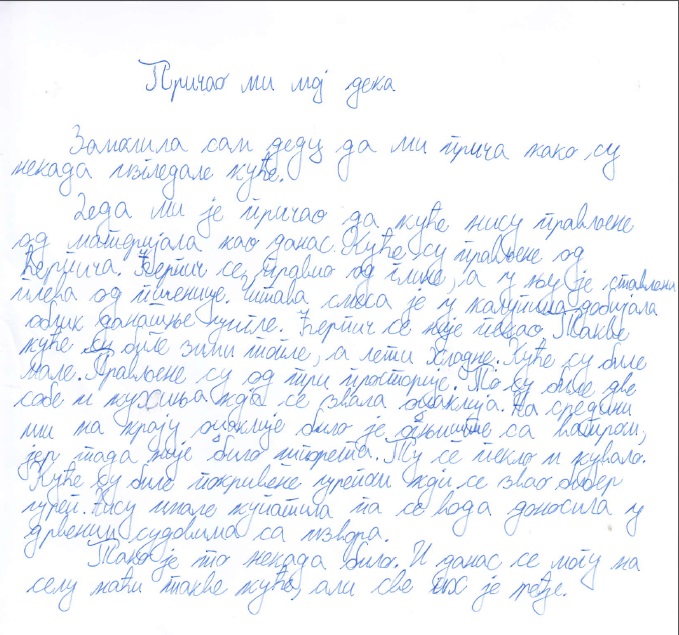 Причао ми мој дека
Замолила сам деду да ми прича како су
некада изгледале куће.
Деда ми је причао да куће нису прављене
од материјала као данас. Куће су прављене од
ћерпича. Ћерпич се правио од глине, а у њу је стављена
плева од пшенице. Читава смеса је у калупима добијала
облик данашње цигле. Ћерпич се није пекао. Такве
куће су биле зими топле, а лети хладне. Куће су биле
мале. Прављене су од три просторије. То су биле две
собе и кухиња која се звала оџаклија. На средини
или на крају оџаклије било је огњиште са ватром,
јер тада није било шпорета. Ту се пекло и кувало.
Куће су биле покривене црепом који се звао бибер
цреп. Нису имале купатила па се вода доносила у
дрвеним судовима са извора.
Тако је то некада било. И данас се могу на
селу наћи такве куће, али све их је ређе.